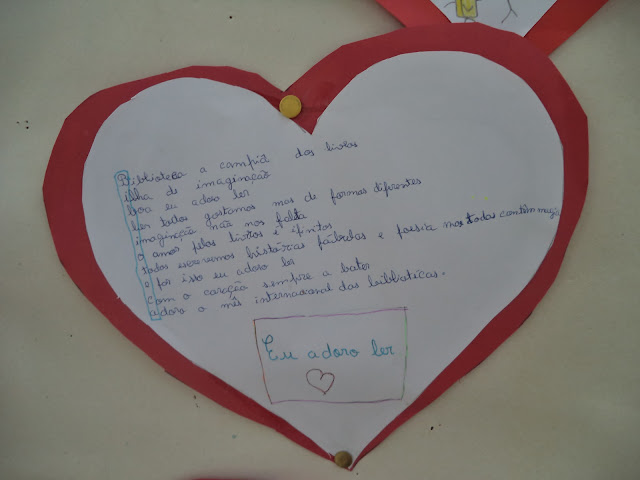 Biblioteca a campiã dos livros
ilha de imaginação
boa eu adoro ler
ler todos gostamos mas de formas difirentes
imaginação não nos falta
o amor pelos livros é ifinito
todos escrevemos histórias fábulas e poesia mas todas contêm magia
e por isso eu adoro ler
com o coração sempre a bater
adoro o mês internacional das
Eu adoro ler